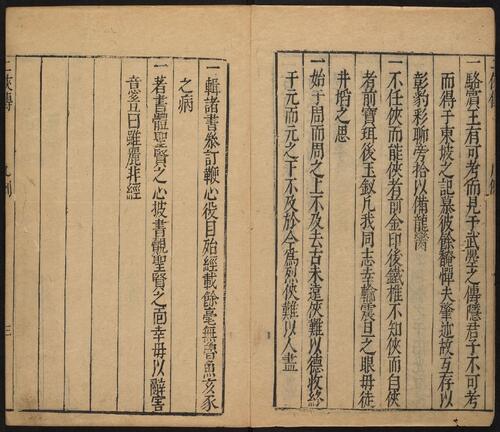 一駱賓王有可考而見于武曌之傳隱君子不可考
而得于東坡之記慕彼餘韻憚夫肇迹故互存以
彰豹彩聊旁拾以備龍臠
一不任俠而能俠者前金印後鐵椎不知俠而自俠
者前寶珥後玉釵凡我同志幸輸震旦之眼毋徒
井焰之思
一始于周而周之上不及去古未遠俠難以德收終
于元而元之下不及於今爲烈俠難以人盡
一輯諸書叅訂鞭心役目殆經載餘毫無魯魚亥豕
之病
一著書體聖賢之心披書覩聖賢之面幸毋以辭害
意昔曰雖麗非經
三